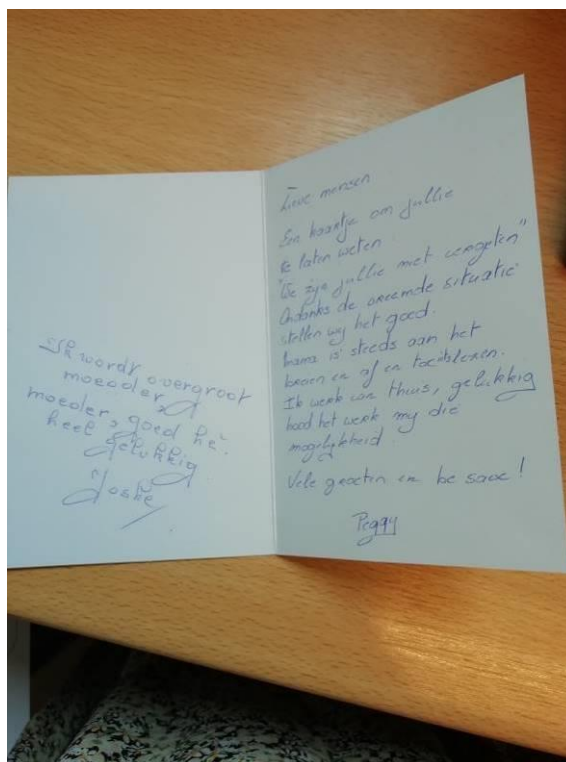 Ik wordt overgroot
moeder,
moeder, goed hé.
heel gelukkig
Joske
Lieve mensen
Een kaartje om jullie
te laten weten.
"We zijn jullie niet vergeten"
Ondanks de vreemde situatie
stellen wij het goed.
Mama is steeds aan het
breien en af en toe
Ik werk van thuis, gelukkig
bood het werk mij die
mogelijkheid.
Vele groeten en be save!
Peggy